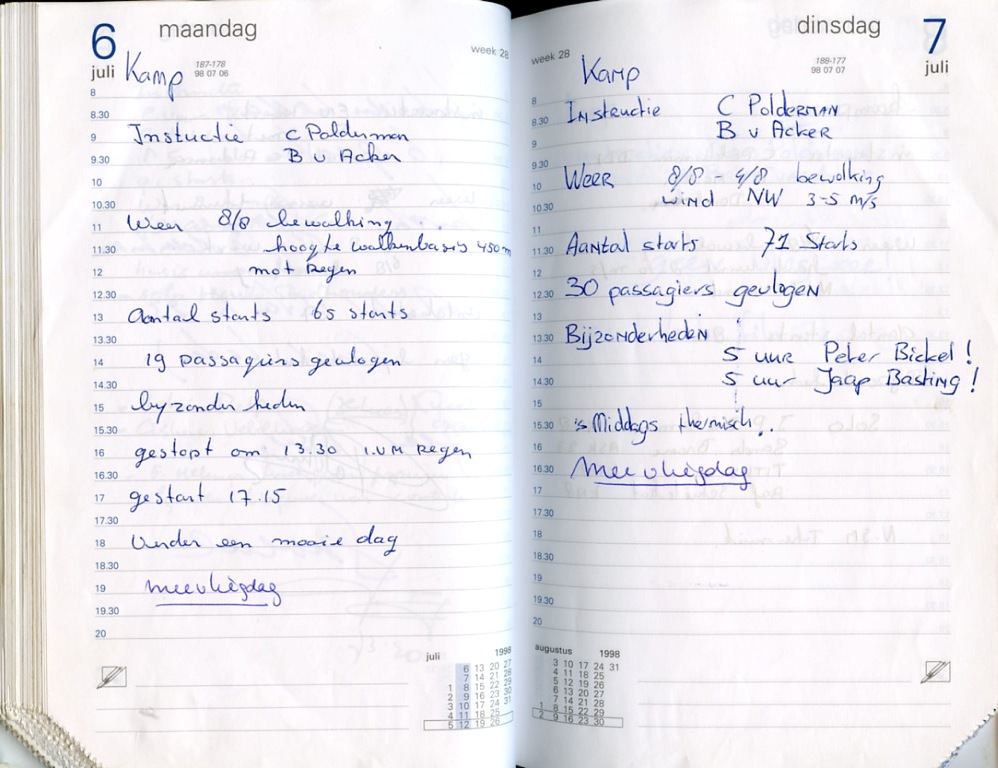 6 maandag
juli
week 28
187-178
98 07 06
Kamp
8
8.30
9 Instuctie C Polderman
9.30 B v Acker
10
10.30
11 Weer 8/8 bewolking
11.30 hoogte wolkenbasis 450 m
12 mot Regen
12.30
13 Aantal starts 65 starts
13.30
14 19 passagiers gevlogen
14.30
15 byzonderheden
15.30
16 gestopt om 13.30 i.v.m Regen
16.30
17 gestart 17.15
17.30
18 Verder een mooie dag
18.30
19 meevliegdag
19.30
20
juli 1998
6 13 20 27
7 14 21 28
1 8 15 22 29
2 9 16 23 30
3 10 17 24 31
4 11 18 25
5 12 19 26
dinsdag 7
juli
week 28
188-177
98 07 07
Kamp
8
8.30 Instructie C Polderman
9 B v Acker
9.30
10 Weer 8/8 - 4/8 bewolking
10.30 wind NW 3-5 m/s
11
11.30 Aantal starts 71 Starts
12
12.30 30 passagiers gevlogen
13
13.30 Bijzonderheden
14 5 uur Peter Bickel !
14.30 5 uur Jaap Basting !
15
15.30 's Middags thermisch..
16
16.30 Meevliegdag
17
17.30
18
18.30
19
19.30
20
augustus 1998
3 10 17 24 31
4 11 18 25
5 12 19 26
6 13 20 27
7 14 21 28
1 8 15 22 29
2 9 16 23 30